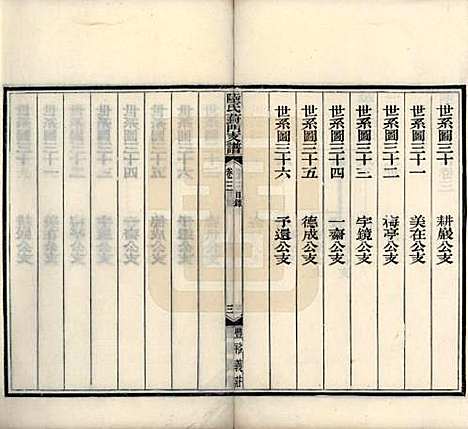 世系圖三十　耕嚴公支
世系圖三十一　美在公支
世系圖三十二　梅亭公支
世系圖三十三　宇鏡公支
世系圖三十四　一齋公支
世系圖三十五　德成公支
世系圖三十六　予還公支
陸氏葑門支譜　卷三　目錄　三　豐裕義莊